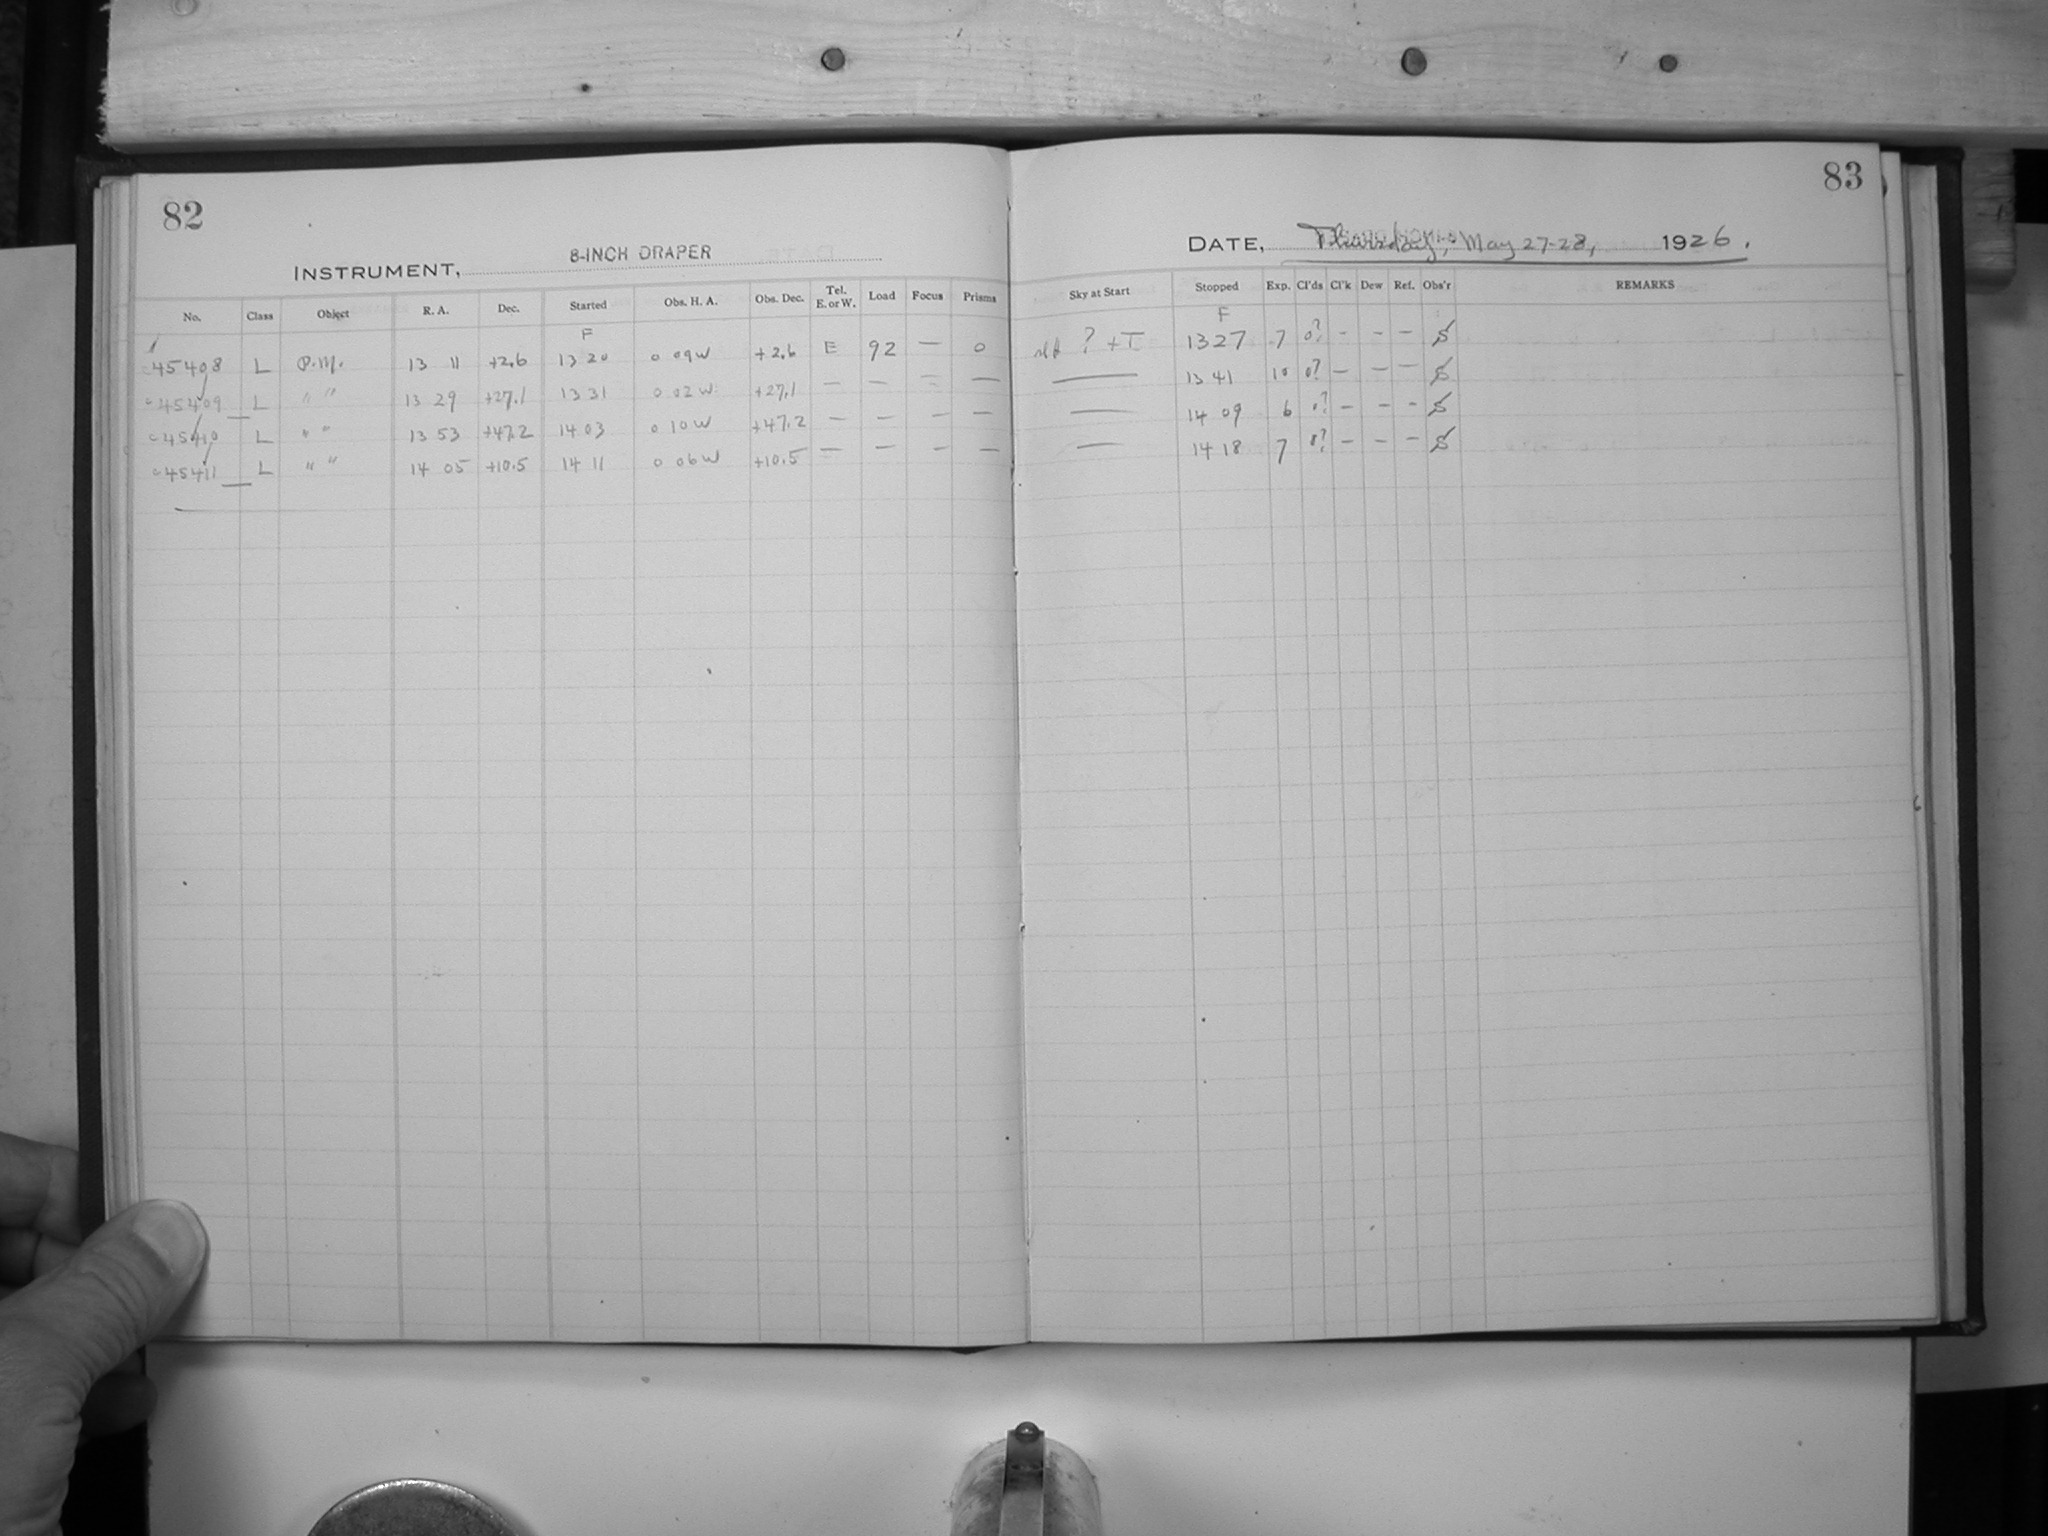 82
INSTRUMENT, 8-INCH DRAPER
No. Class Object R. A. Dec. Started Obs. H. A. Obs. Dec. Tel. E. or W. Load Focus Prisms
F
45408 L P.M. 13 11 +2.6 13 20 0 09W +2.6 E 92 — 0
45409 L " " 13 29 +27.1 13 31 0 02W +27.1 — — — —
45410 L " " 13 53 +47.2 14 03 0 10W +47.2 — — — —
45411 L " " 14 05 +10.5 14 11 0 06W +10.5 — — — —
83
DATE, Thursday, May 27-28, 1926.
Sky at Start Stopped Exp. Cl'ds Cl'k Dew Ref. Obs'r REMARKS
F
? +I 13 27 7 0? – – – S
— 13 41 10 0? – – – S
— 14 09 6 0? – – – S
— 14 18 7 0? – – – S